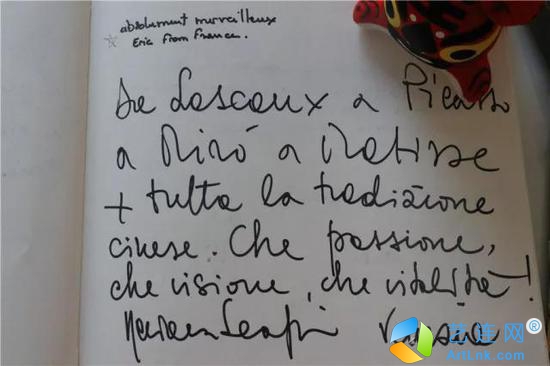 absolument merveilleux
Eric from France.
Da Lascaux a Picasso
a Mirò a Matisse
+ tutta la tradizione
cinese. Che passione,
che visione, che vitalità!
艺连网®
ArtLnk.com